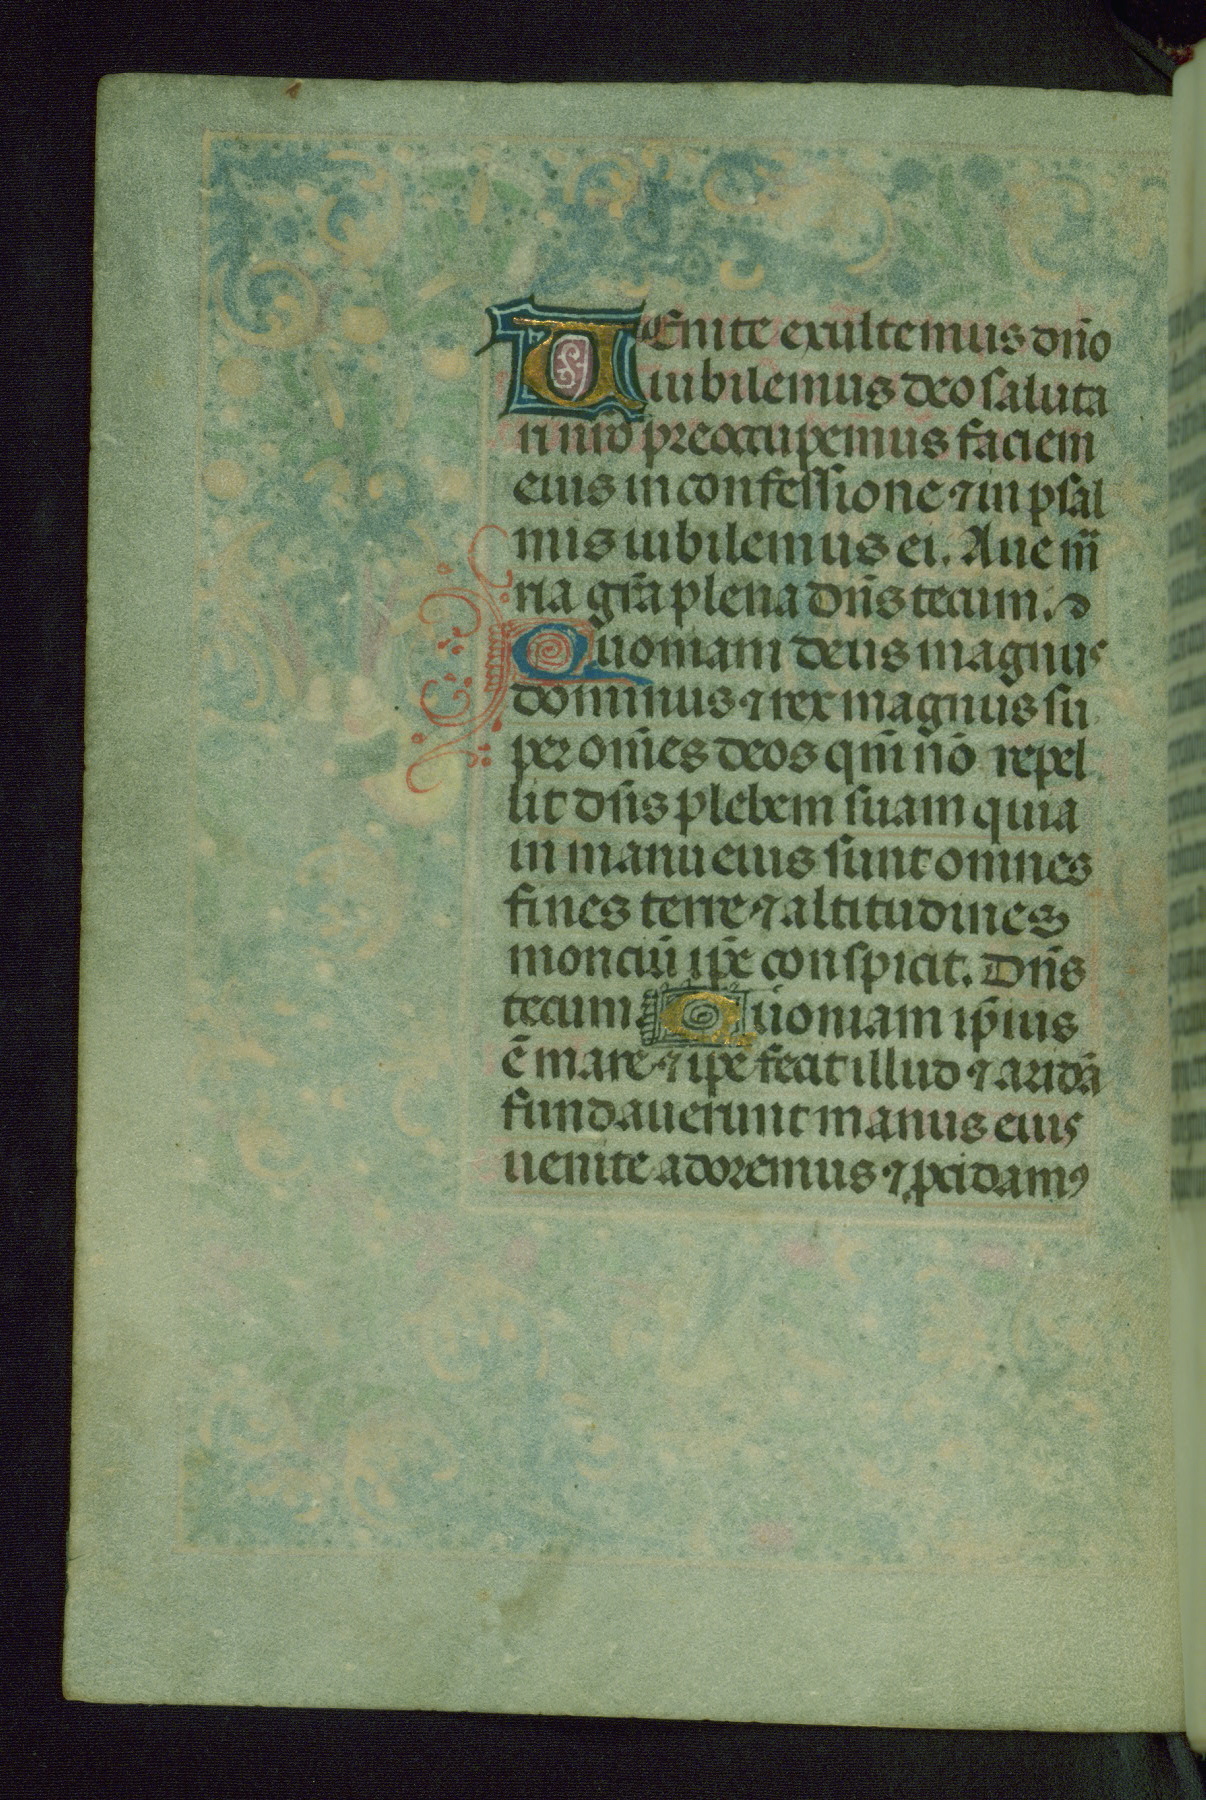 VEnite exultemus dn̄o
iubilemus deo saluta
ri nr̄o preoccupemus faciem
eius in confessione ⁊ in psal
mis iubilemus ei. Aue m̄
ria gr̄a plena dn̄s tecum.
Quoniam deus magnus
dominus ⁊ rex magnus su
per om̄es deos qm̄ nō repel
lit dn̄s plebem suam quia
in manu eius sunt omnes
fines terre ⁊ altitudines
monciū ip̄e conspicit. Dn̄s
tecum Quoniam ip̄ius
ē mare ⁊ ip̄e fecit illud ⁊ aridā
fundauerunt manus eius
uenite adoremus ⁊ pcidamꝰ